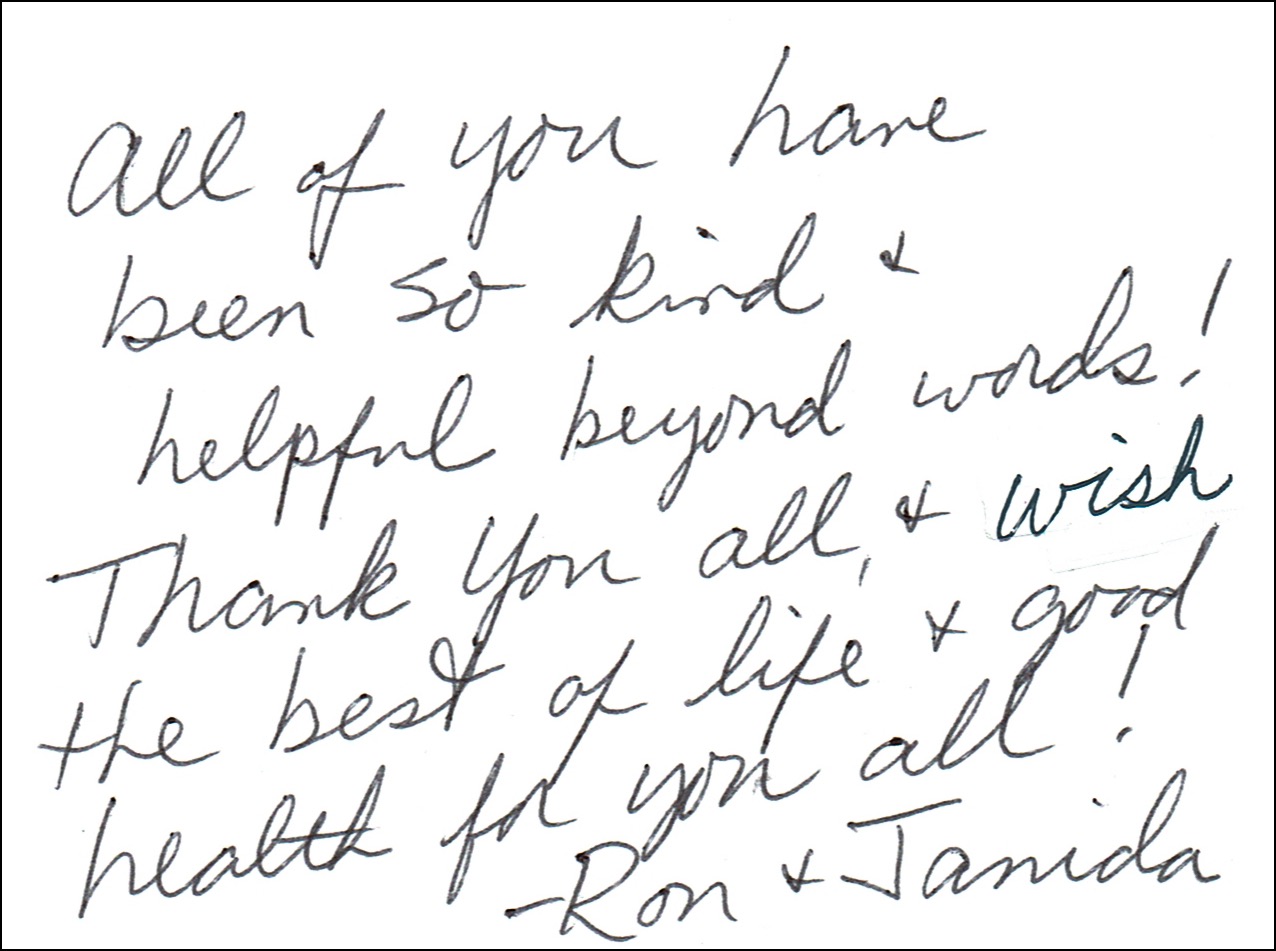 All of you have
been so kind &
helpful beyond words!
Thank You all, & wish
the best of life & good
health for you all!
-Ron & Janida